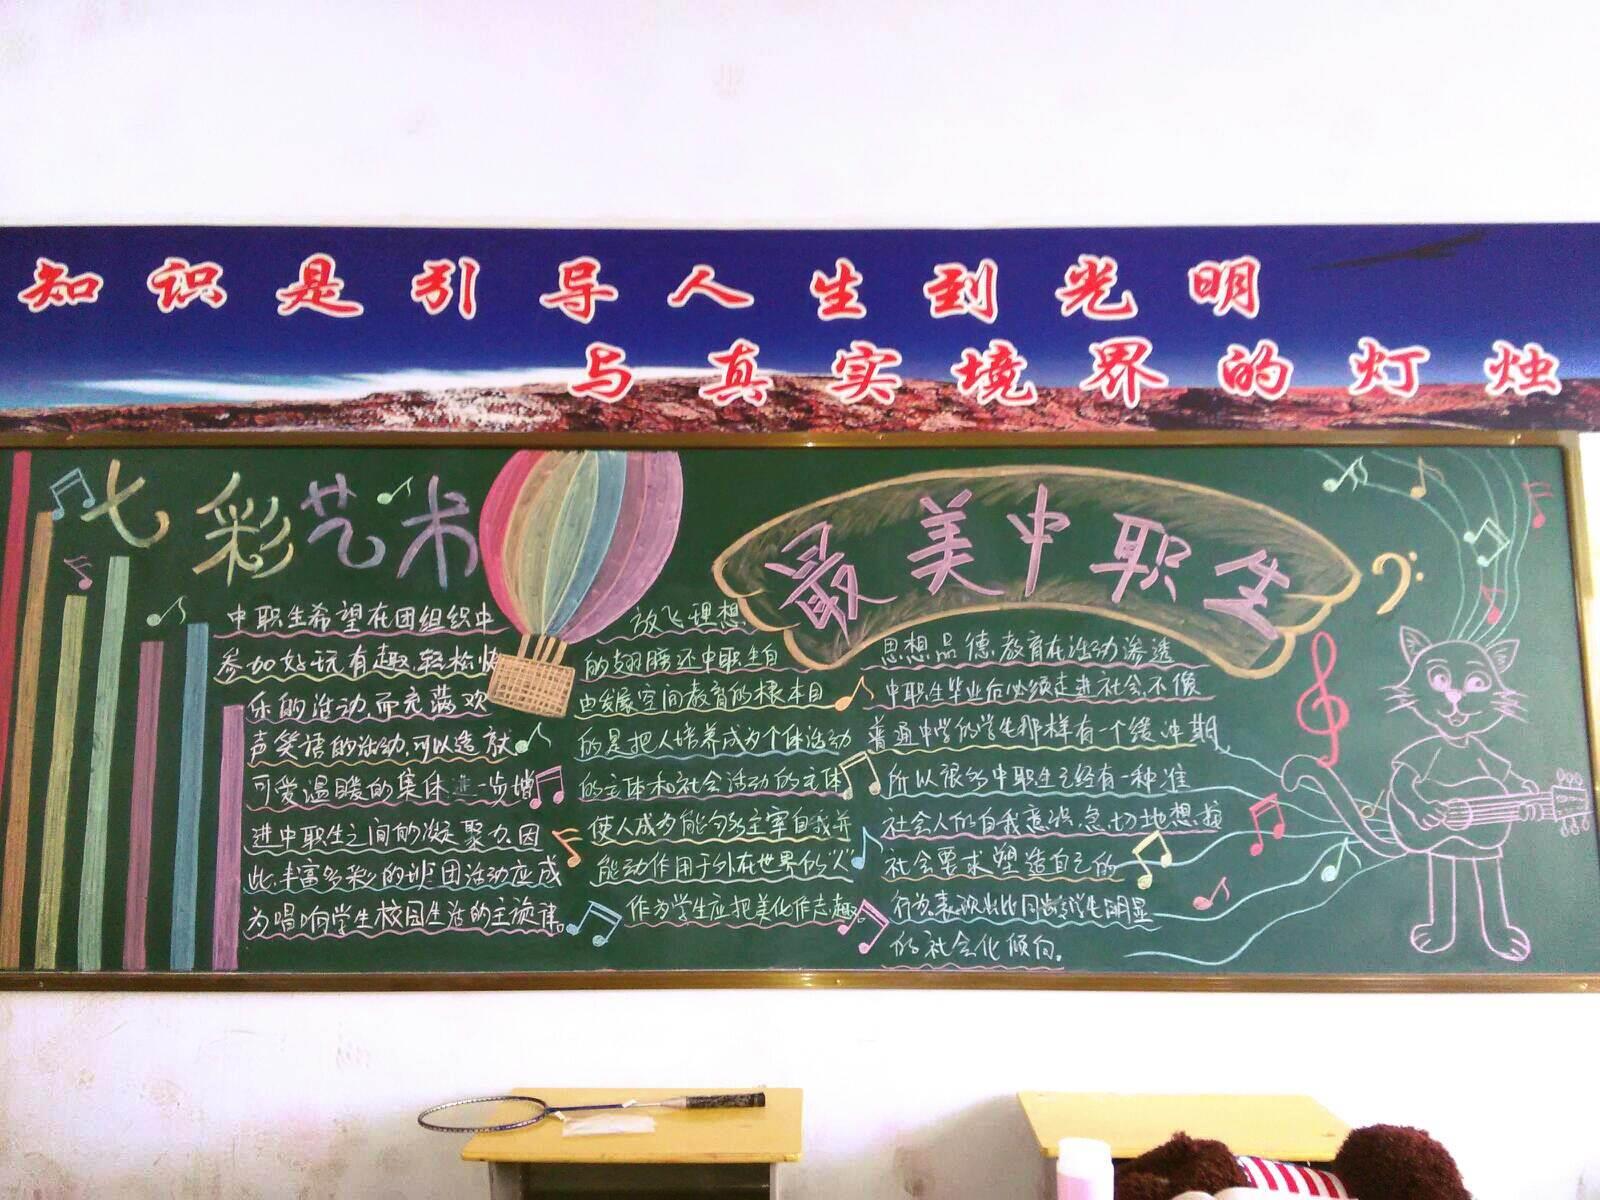 知识是引导人生到光明
与真实境界的灯烛
七彩艺术
中职生希望在团组织中
参加好玩有趣、轻松快
乐的活动,而充满欢
声笑语的活动,可以造就
可爱温暖的集体 進一步增
进中职生之间的凝聚力,因
此,丰富多彩的班团活动应成
为唱响学生校园生活的主旋律。
放飞理想
的翅膀还中职生自
由发展空间教育的根本目
的是把人培养成为个体活动
的主体和社会活动的主体
使人成为能够主宰自我并
能动作用于外在世界的“人”
作为学生应把美化作志趣。
最美中职生
思想品德、教育在活动渗透
中职生毕业后必须走进社会,不像
普通中学的学生那样有一个缓冲期
所以很多中职生已经有一种准
社会人的自我意识,急切地想按
社会要求塑造自己的
行为,表现出比同龄学生明显
的社会化倾向。